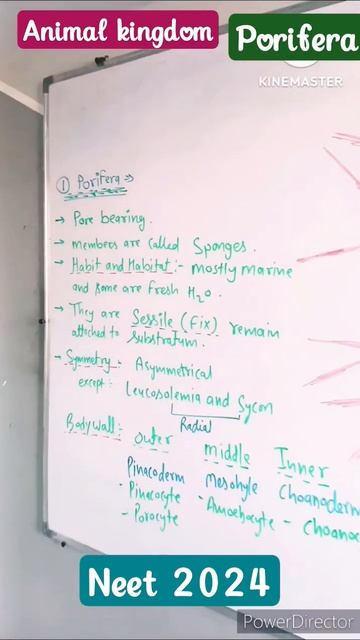 Animal kingdom
Porifera
KINEMASTER
① Porifera ⇒
→ Pore bearing.
→ members are called Sponges.
→ Habit and Habitat :- mostly marine
and some are fresh H₂O.
→ They are Sessile (Fix) remain
attached to substratum.
→ Symmetry :- Asymmetrical
except :- Leucosolenia and Sycon
Radial
Body wall :- outer middle Inner
Pinacoderm Mesohyle Choanoderm
- Pinacocyte - Amoebocyte - Choanoc
- Porocyte
Neet 2024
PowerDirector